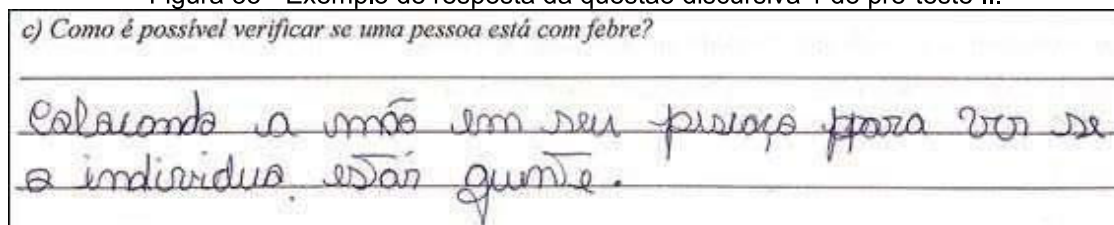 c) Como é possível verificar se uma pessoa está com febre?
Colocando a mão em seu pescoço para ver se
o individuo estár quente.